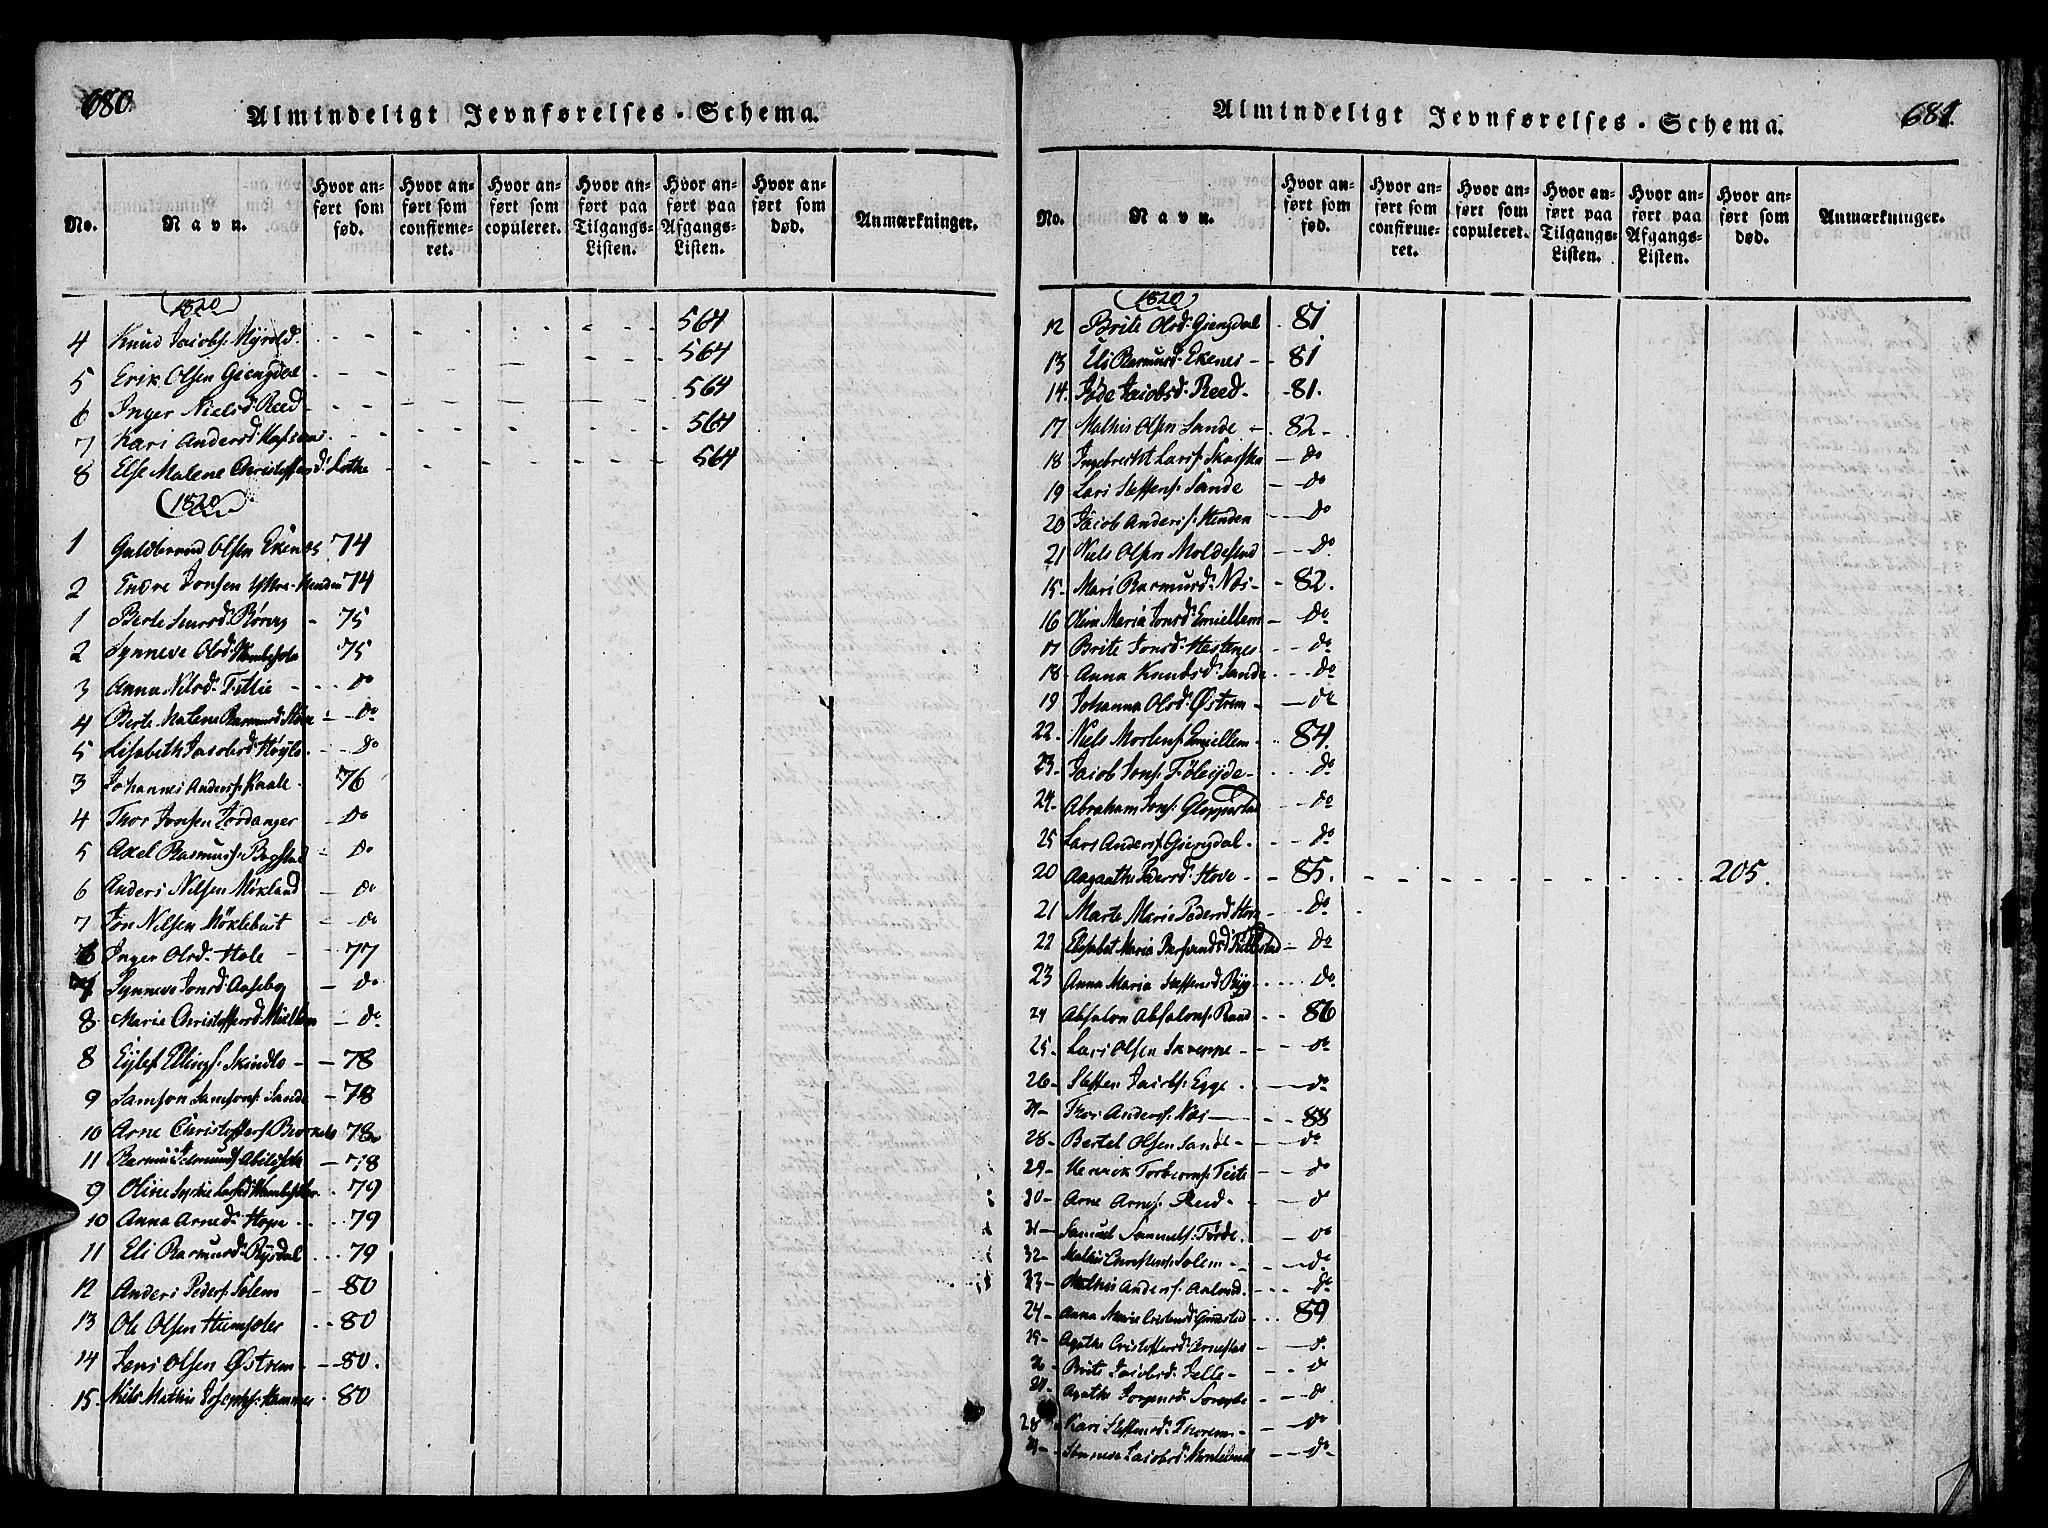 680.
Almindeligt Jevnførelses-Schema.
No. Navn. Hvor anført som fød. Hvor anført som confirmeret. Hvor anført som copuleret. Hvor anført paa Tilgangs-Listen. Hvor anført paa Afgangs-Listen. Hvor anført som død. Anmærkninger.
1820
4 Knud Jacobs: Myrold 564
5 Erik Olsen Giengdal 564
6 Inger Nielsd: Reed 564
7 Kari Andersd: 564
8 Else Malene Christoffersd: Lothe 564
1820
1 Guldbrand Olsen Ekenes 74
2 Endre Jonsen Ytre-Henden 74
1 Berte 75
2 Synneve Olsd: 75
3 Anna Nilsd: do
4 Berte Malene Rasmusd: do
5 Lisabeth Jacobsd: do
3 Johannes Anders: 76
4 Thor Jonsen Jordanger do
5 Axel Rasmus: do
6 Anders Nilsen Mökland do
7 Jon Nilsen Möklebust do
6 Inger Olsd: Hole 77
7 Synneve Jonsd: Aasebø do
8 Marie Christoffersd: do
8 Eylef Ellings: Skindlo 78
9 Samson Samsons: Sande 78
10 Arne Christoffers: 78
11 Rasmus 78
9 Oline 79
10 Anna Arned: Hope 79
11 Eli Rasmusd: Rysdal 79
12 Anders Peders: Solem 80
13 Ole Olsen 80
14 Jens Olsen Østrem 80.
15. Nils Mathis Josephs: Hammer 80
681.
Almindeligt Jevnførelses-Schema.
No. Navn. Hvor anført som fød. Hvor anført som confirmeret. Hvor anført som copuleret. Hvor anført paa Tilgangs-Listen. Hvor anført paa Afgangs-Listen. Hvor anført som død. Anmærkninger.
1820
12 Brite Olsd: Giengdal 81
13 Eli Rasmusd: Ekenes 81
14. Jacobsd: Reed 81.
17 Mathis Olsen Sande 82
18 Ingebrecht Lars: do
19 Lars Steffens: Sande do
20 Jacob Anders: Henden do
21 Niels Olsen Moldestad do
15. Mari Rasmusd: Nos 82.
16 Maria Jonsd: Emiellem do
17 Brite Jonsd: Hestenes do
18 Anna Knudsd: Sande do
19 Johanna Olsd: Østrem do
22 Niels Mortens: Emiellem 84.
23 Jacob Jons: do
24 Abraham Jons: do
25 Lars Anders: Giengdal do
20 Aagaathe Pedersd: Hove 85. 205.
21 Marte Marie Pedersd: do
22 Elisabet Maria do
23 Anna Maria Steffensd: Ryg do
24 Absalon Absalons: Rand 86
25 Lars Olsen Skreppe do
26 Steffen Jacobs: Egge do
27 Thor Anders: Nos 88
28 Bertel Olsen Sande do
29 Henrik Torbiorns: Teite do
30 Arne Arnes: Reed do
31 Samuel Samuels: Förde do
32 Mathis Solem do
33 Mathis Anders: do
24 Anna Marie 89
25 Agathe Cristoffersd: do
26 Brite Jacobsd: do
27 Agathe do
28 Kari Steffensd: do
29 Jacobsd: do